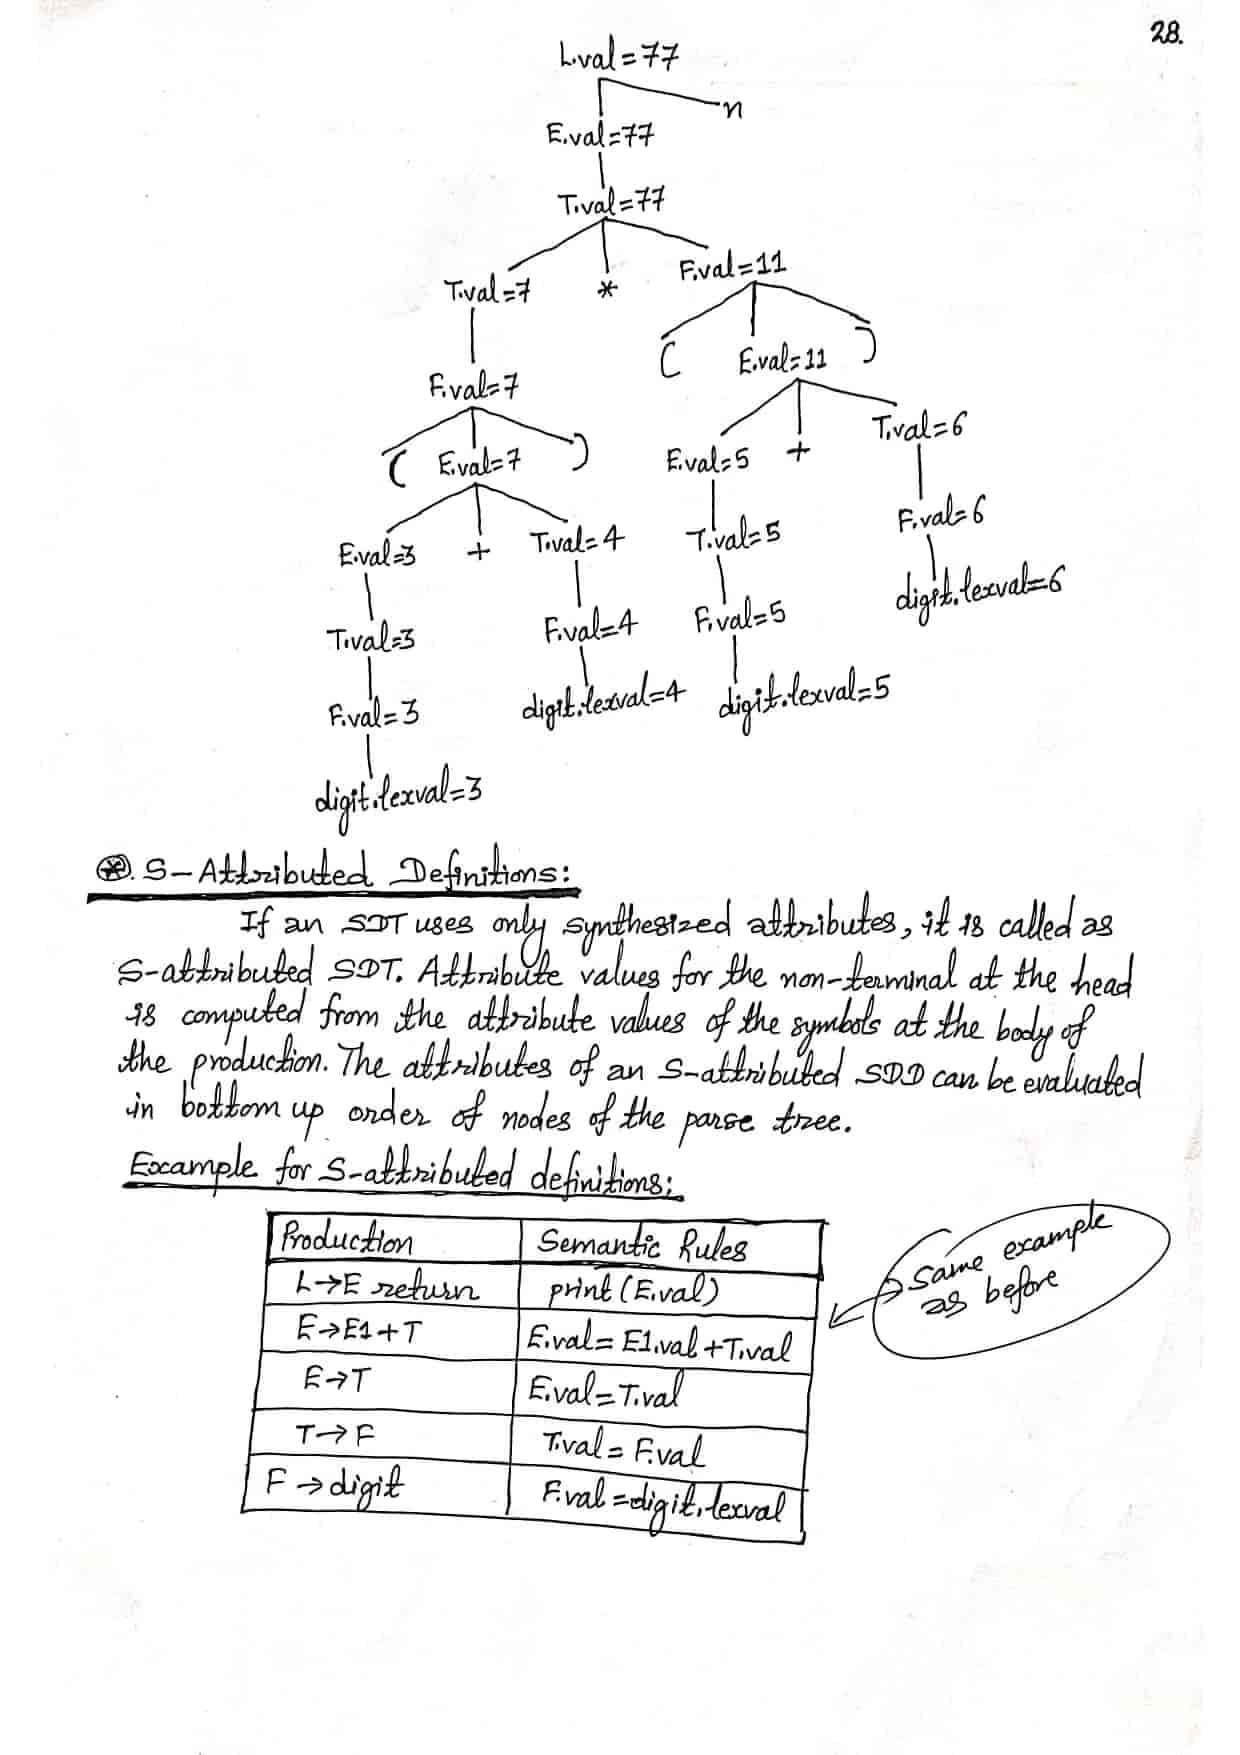 28.
L.val=77
n
E.val=77
T.val=77
T.val=7 * F.val=11
( E.val=11 )
F.val=7
T.val=6
( E.val=7 ) E.val=5 +
F.val=6
E.val=3 + T.val=4 T.val=5
digit.lexval=6
T.val=3 F.val=4 F.val=5
F.val=3 digit.lexval=4 digit.lexval=5
digit.lexval=3
⊛. S-Attributed Definitions:
If an SDT uses only synthesized attributes, it is called as
S-attributed SDT. Attribute values for the non-terminal at the head
is computed from the attribute values of the symbols at the body of
the production. The attributes of an S-attributed SDD can be evaluated
in bottom up order of nodes of the parse tree.
Example for S-attributed definitions:
Production Semantic Rules
L→E return print(E.val)
E→E1+T E.val=E1.val+T.val
E→T E.val=T.val
T→F T.val=F.val
F→digit F.val=digit.lexval
Same example
as before